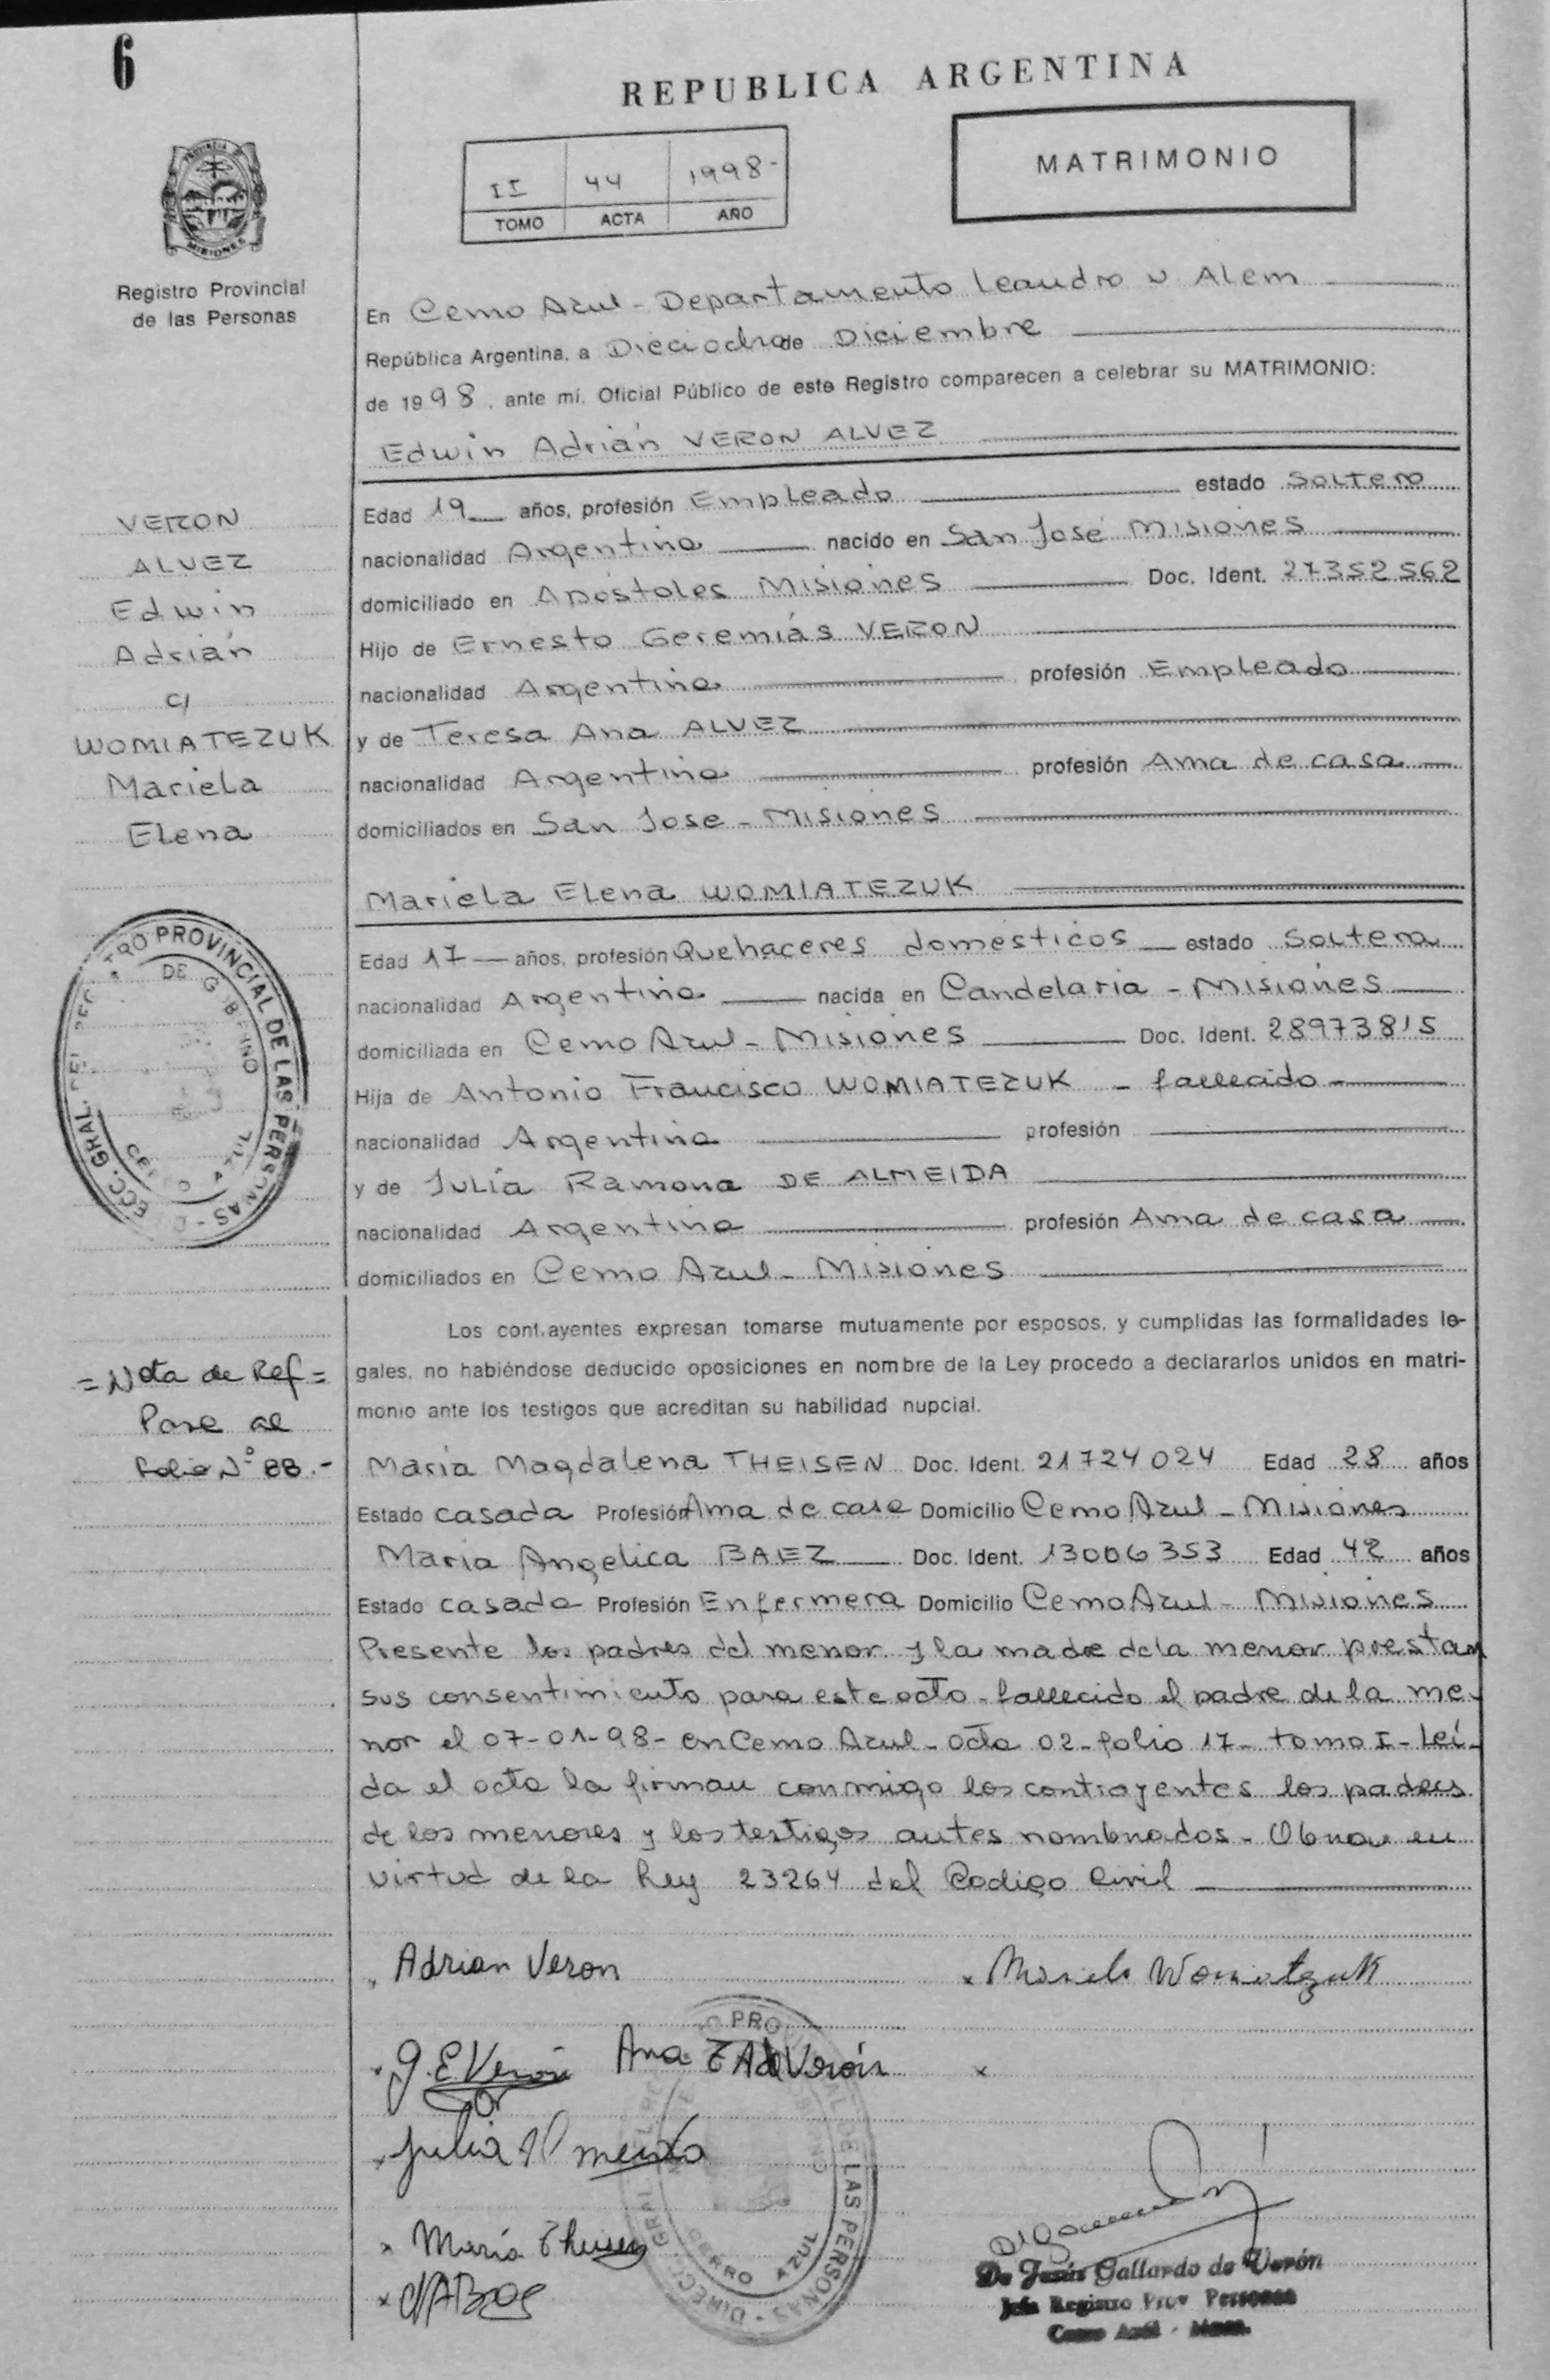 6
REPUBLICA ARGENTINA
II 44 1998-
TOMO ACTA AÑO
MATRIMONIO
PROVINCIA
MISIONES
Registro Provincial
de las Personas
En Cerro Azul - Departamento Leandro N Alem
República Argentina, a Dieciocho de Diciembre
de 1998, ante mí, Oficial Público de este Registro comparecen a celebrar su MATRIMONIO:
Edwin Adrián VERON ALVEZ
Edad 19 años, profesión Empleado estado Soltero
nacionalidad Argentina nacido en San José Misiones
domiciliado en Apóstoles Misiones Doc. Ident. 27352562
Hijo de Ernesto Geremiás VERON
nacionalidad Argentina profesión Empleado
y de Teresa Ana ALVEZ
nacionalidad Argentina profesión Ama de casa
domiciliados en San Jose - Misiones
VERON
ALVEZ
Edwin
Adrián
c/
WOMIATEZUK
Mariela
Elena
Mariela Elena WOMIATEZUK
Edad 17 años, profesión Quehaceres domesticos estado Soltera
nacionalidad Argentina nacida en Candelaria - Misiones
domiciliada en Cerro Azul - Misiones Doc. Ident. 28973815
Hija de Antonio Francisco WOMIATEZUK - fallecido -
nacionalidad Argentina profesión
y de Julia Ramona DE ALMEIDA
nacionalidad Argentina profesión Ama de casa
domiciliados en Cerro Azul - Misiones
PROVINCIAL DE LAS PERSONAS
Los contrayentes expresan tomarse mutuamente por esposos, y cumplidas las formalidades le-
gales, no habiéndose deducido oposiciones en nombre de la Ley procedo a declararlos unidos en matri-
monio ante los testigos que acreditan su habilidad nupcial.
= Nota de Ref =
Pase al
folio N° 88.-
Maria Magdalena THEISEN Doc. Ident. 21724024 Edad 28 años
Estado casada Profesión Ama de casa Domicilio Cerro Azul - Misiones
Maria Angelica BAEZ Doc. Ident. 13006353 Edad 42 años
Estado casada Profesión Enfermera Domicilio Cerro Azul - Misiones
Presente los padres del menor y la madre de la menor prestan
sus consentimiento para este acto - fallecido el padre de la me-
nor el 07-01-98- en Cerro Azul - acta 02 - folio 17 - tomo I - Leí-
da el acta la firman conmigo los contrayentes los padres
de los menores y los testigos antes nombrados - Obrar en
virtud de la Ley 23264 del Codigo Civil
Adrian Veron
Mariela Womiatzuk
G. E Verón Ana Verón
Julia
María Theisen
CERRO AZUL
LAS PERSONAS
De Jesús Gallardo de Verón
Jefa Registro Prov Personas
Cerro Azul - Mnes.